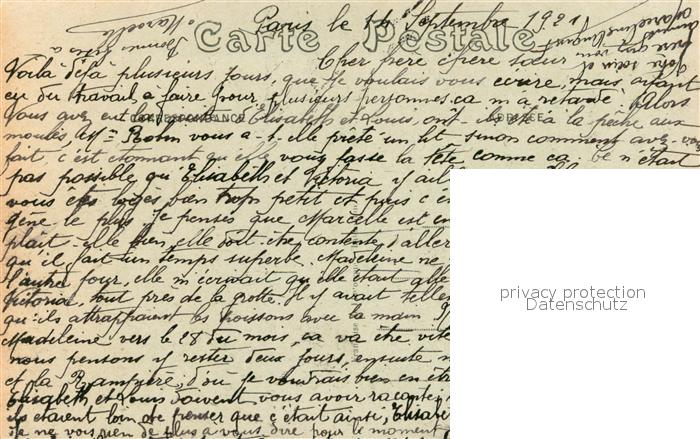 Paris le 14 Septembre 1921
Carte Postale
Marcelle
Cher frère chère sœur
Voilà déjà plusieurs jours, que je voulais vous écrire, mais ayant
eu du travail a faire pour plusieurs personnes, ca m'a retardé. Alors
CORRESPONDANCE
vous avez eu Elisabeth et Louis, ont-ils été à la pêche aux
moules, Mme Bohn vous a-t-elle prêté un lit sinon comment avez-vous
fait c'est étonnant qu'elle vous fasse la tête comme ca. ce n'était
pas possible qu'Elisabeth et Victoria y ail
vous êtes logés bien trop petit et puis c'e
gêne le plus. Je pense que Marcelle est en
plait-elle bien, elle doit être contente d'aller
qu'il fait un temps superbe. Madeleine ne
l'autre jour, elle m'écrivait qu'elle était allé
Victoria, tout près de la grotte. Il y avait telle
qu'ils attrapaient les poissons avec la main
Madeleine vers le 28 du mois, ca va être vite
nous pensons y rester deux jours, ensuite
et la Rampière, d'où je voudrais bien en êtr
Elisabeth et Louis doivent vous avoir raconter
ils étaient loin de penser que c'était ainsi, Elisabe
Je ne vois rien de plus a vous dire pour le moment
privacy protection
Datenschutz